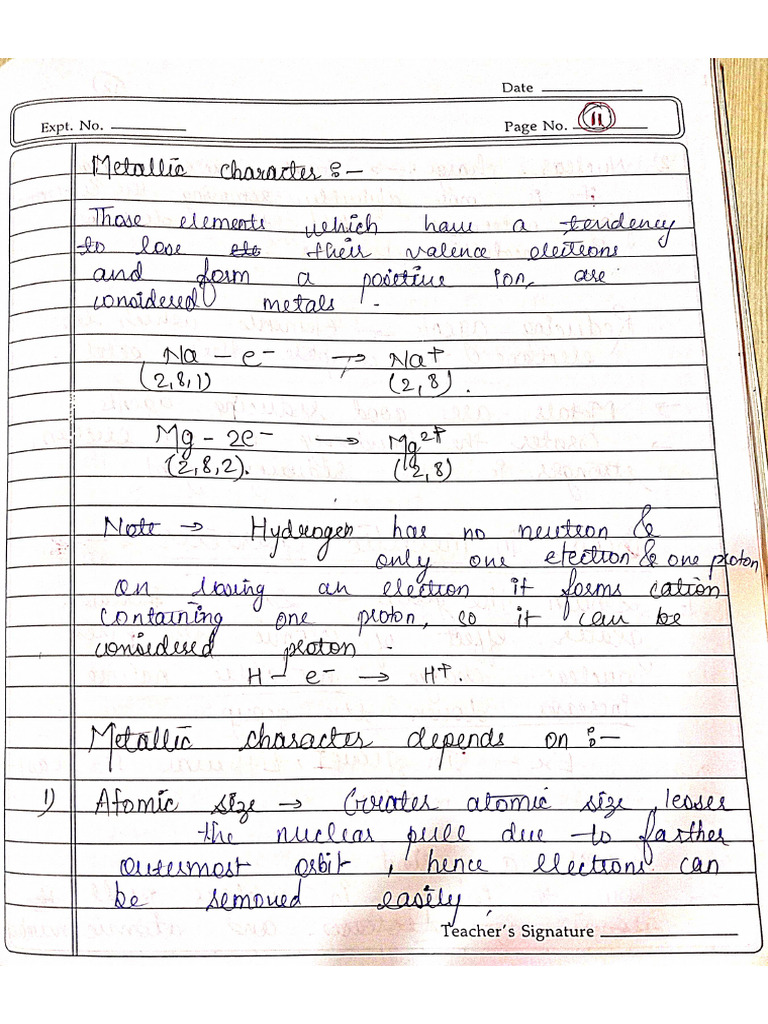 Date
Expt. No.
Page No. 11
Metallic character :-
Those elements which have a tendency
to lose their valence electrons
and form a positive ion, are
considered metals .
Na - e⁻ → Na⁺
(2,8,1) (2,8) .
Mg - 2e⁻ → Mg²⁺
(2,8,2). (2,8)
Note → Hydrogen has no neutron &
only one electron & one proton
on losing an electron it forms cation
containing one proton, so it can be
considered proton .
H - e⁻ → H⁺.
Metallic character depends on :-
1) Atomic size → Greater atomic size, lesser
the nuclear pull due to farther
outermost orbit, hence electrons can
be removed easily
Teacher's Signature